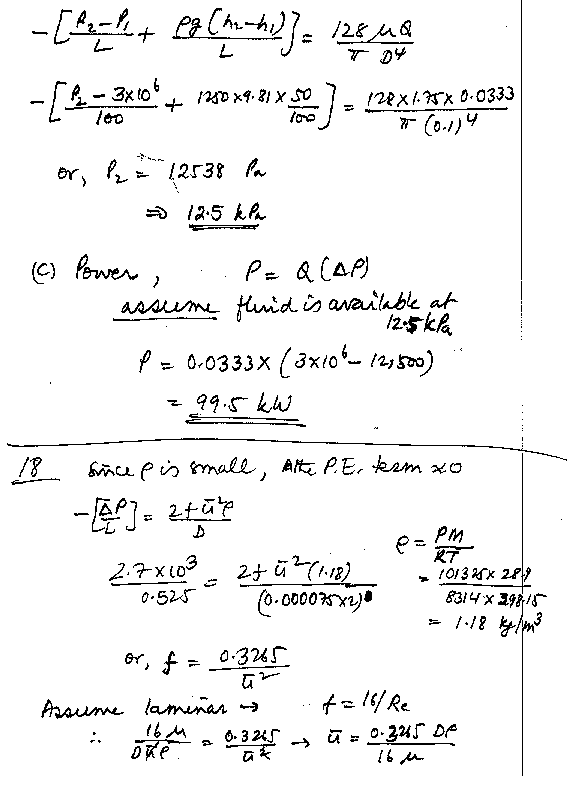 -[(P₂-P₁)/L + ρg(h₂-h₁)/L] = 128 μQ / π D⁴
-[(P₂ - 3x10⁶)/100 + 1250 x9.81 x 50/100] = 128 x 1.75 x 0.0333 / π (0.1)⁴
or, P₂ = 12538 Pa
⇒ 12.5 kPa
(c) Power, P = Q (ΔP)
assume fluid is available at
12.5 kPa
P = 0.0333 x (3x10⁶ - 12,500)
= 99.5 kW
18 Since ρ is small, the P.E. term ≈0
-[ΔP/L] = 2f ū²ρ / D
ρ = PM/RT
2.7 x10³ / 0.525 = 2f ū² (1.18) / (0.000075x2)
= 101325 x 28.9 / 8314 x 298.15
= 1.18 kg/m³
or, f = 0.3265 / ū²
Assume laminar → f = 16/Re
∴ 16 μ / Dūρ = 0.3265 / ū² → ū = 0.3265 Dρ / 16 μ